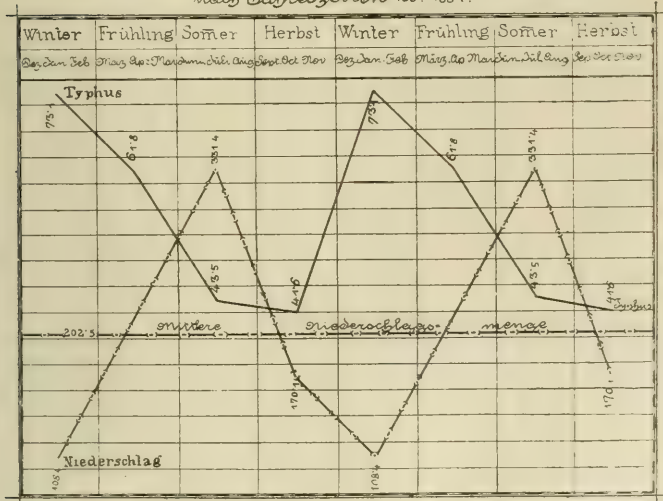 nach Jahreszeiten
Winter Frühling Som̄er Herbst Winter Frühling Som̄er Herbst
Dez. Jan Feb März Ap: Mai Juni, Juli Aug Sept. Oct Nov Dez. Jan. Feb März. Ap Mai Jun, Jul. Aug Sep Oct Nov
Typhus
73·1 61·8 331·4 73·1 61·8 331·4
43·5 41·6 43·5 41·6 Typhus
202·5 Mittlere Niederschlags- menge
170·1 170·1
Niederschlag
108·4 108·4